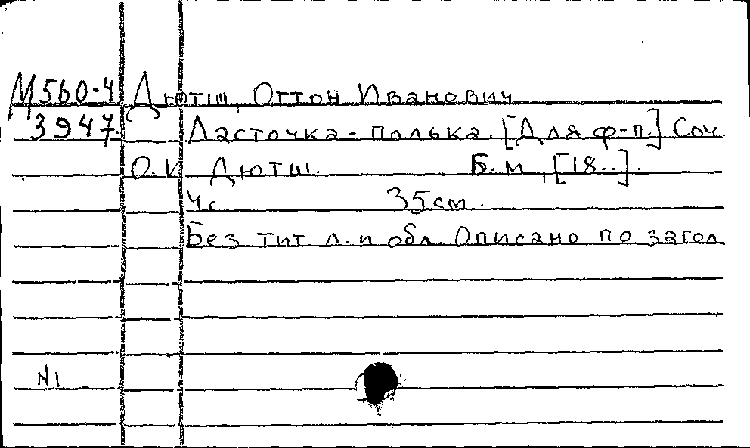 М560-4 Дютш, Оттон Иванович
3947. Ласточка-полька. [Для ф-п.] Соч
О.И. Дютш. Б.м., [18..].
4с 35см.
Без тит. л. и обл. Описано по загол
N1